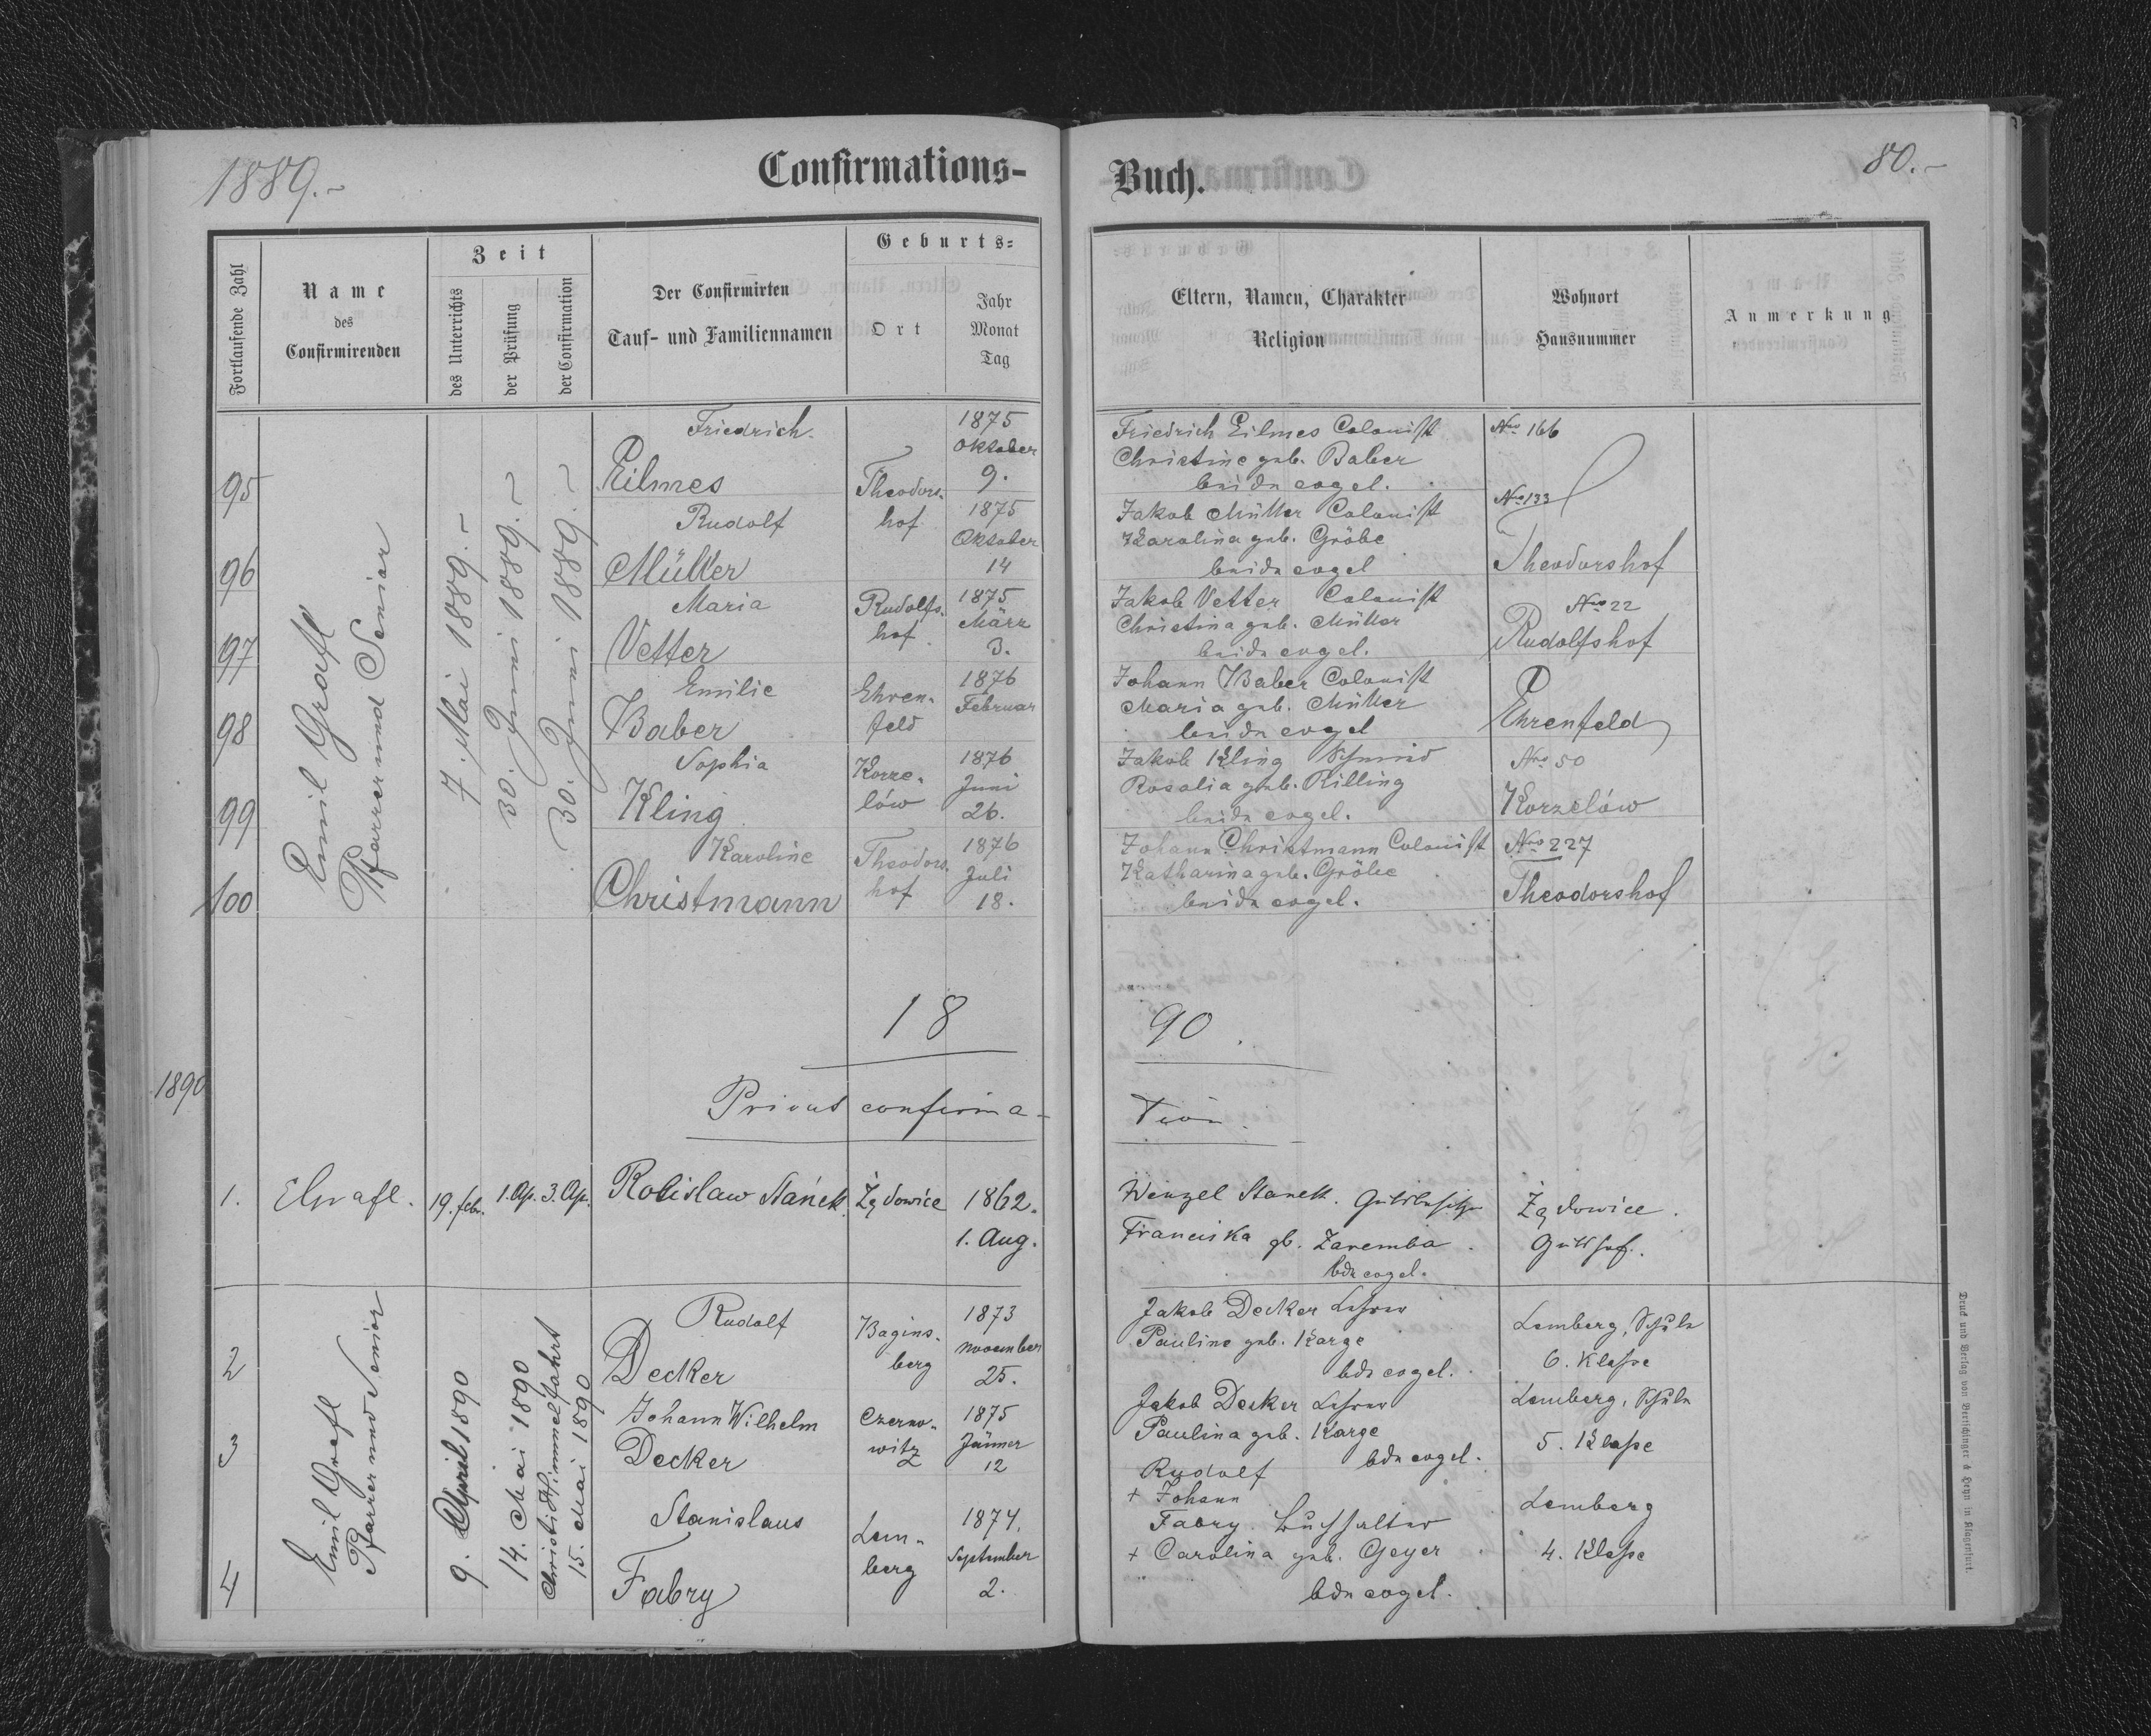 1889.-
Confirmations-
Fortlaufende Zahl
Name
des
Confirmirenden
Zeit
des Unterrichts
der Prüfung
der Confirmation
Der Confirmirten
Tauf- und Familiennamen
Geburts=
Ort
Jahr
Monat
Tag
Emil Grafl
Pfarrer und Senior
7. Mai 1889.-
30. Juni 1889.-
30. Juni 1889.-
Friedrich
95
Eilmes
Theodors-
hof
1875
Oktober
9.
Rudolf
96
Müller
1875
Oktober
14
Maria
97
Vetter
Rudolfs-
hof
1875
März
3.
Emilie
98
Baber
Ehren-
feld
1876
Februar
Sophia
99
Kling
Korze-
lów
1876
Juni
26.
Karoline
100
Christmann
Theodors-
hof
1876
Juli
18.
18
1890
Privat confirma-
1.
EGrafl.
19. feb.
1. Ap.
3. Ap.
Stanek
1862.
1. Aug.
Emil Grafl
Pfarrer und Senior
9. April 1890
14. Mai 1890
Christi Himmelfahrt
15. Mai 1890
2
Rudolf
Decker
Bagins-
berg
1873
November
25.
3
Johann Wilhelm
Decker
Czerno-
witz
1875
Jänner
12
4
Stanislaus
Fabry
Lem-
berg
1874.
September
2.
Buch.
80.-
Eltern, Namen, Charakter
Religion
Wohnort
Hausnummer
Anmerkung
Friedrich Eilmes Colonist
Christine geb. Baber
beide evgel.
Nro 166
Jakob Müller Colonist
Karolina geb. Gröbe
beide evgel
No 133
Theodorshof
Jakob Vetter Colonist
Christina geb. Müller
beide evgel.
Nro 22
Rudolfshof
Johann Baber Colonist
Maria geb. Müller
beide evgel
Ehrenfeld
Jakob Kling Schmied
Rosalia geb. Rilling
beide evgel.
Nro 50
Korzelów
Johann Christmann Colonist
Katharina geb. Gröbe
beide evgel.
Nro 227
Theodorshof
90.
tion.
Wenzel Stanek. Gutsbesitzer
Franciska gb. Zaremba
bde evgel.
Gutshof.
Jakob Decker Lehrer
Pauline geb. Karge
bde evgel.
Lemberg, Schule
6. Klasse
Jakob Decker Lehrer
Paulina geb. Karge
bde evgel.
Lemberg, Schule
5. Klasse
Rudolf
+ Johann
Fabry. Buchhalter
+ Carolina geb. Geyer
bde evgel.
Lemberg
4. Klasse
Druck und Verlag von Bertschinger & Heyn in Klagenfurt.